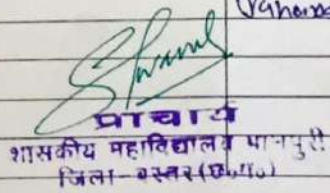 प्राचार्य
शासकीय महाविद्यालय भानपुरी
जिला-बस्तर (छ.ग.)